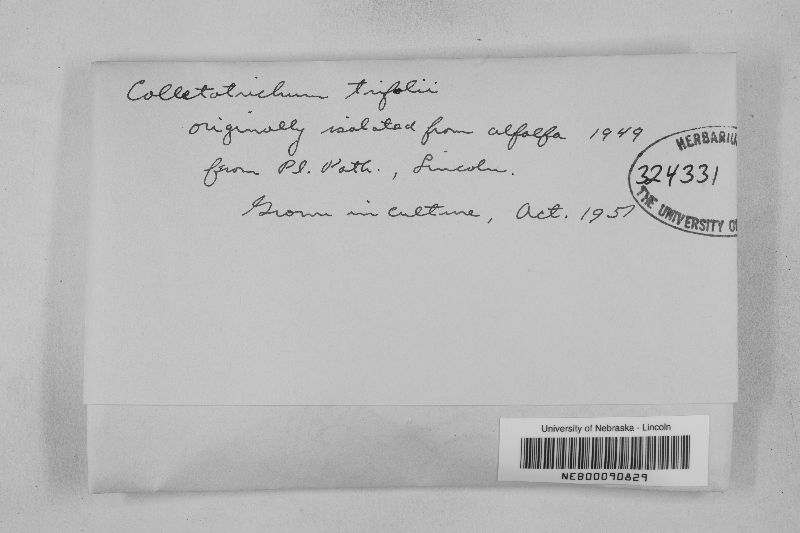 Colletotrichum trifolii
originally isolated from alfalfa 1949
from Pl. Path., Lincoln.
Grown in culture, Oct. 1951
HERBARIU
324331
THE UNIVERSITY O
University of Nebraska - Lincoln
NEB00090829